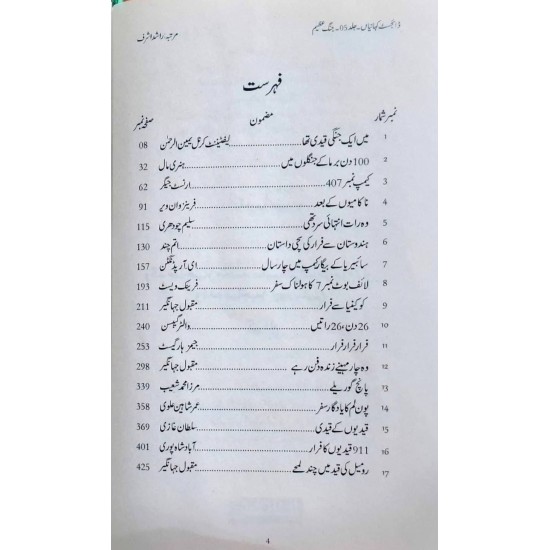 ڈائجسٹ کہانیاں۔جلد 05۔جنگ عظیم مرتبہ:راشد اشرف
فہرست
نمبر شمار مضمون صفحہ نمبر
1 میں ایک جنگی قیدی تھا......لیفٹیننٹ کرنل یمین الرحمٰن 08
2 100 دن برما کے جنگلوں میں......ہنری مال 32
3 کیمپ نمبر 407......ارنسٹ جیگر 62
4 ناکامیوں کے بعد......فرینز وان ویر 91
5 وہ رات انتہائی سرد تھی......سلیم چودھری 115
6 ہندوستان سے فرار کی سچی داستان......اتم چند 130
7 سائبیریا کے بیگار کیمپ میں چار سال......ای۔آر پڈنگٹن 157
8 لائف بوٹ نمبر 7 کا ہولناک سفر......فرینک ویسٹ 193
9 کو کینیا سے فرار......مقبول جہانگیر 211
10 26 دن، 26 راتیں......والٹر گبسن 240
11 فرار فرار فرار......جیمز ہارگیسٹ 253
12 وہ چار مہینے زندہ دفن رہے......مقبول جہانگیر 298
13 پانچ گوریلے......مرزا محمد شعیب 339
14 پون لم کا یادگار سفر......عمر شاہین علوی 358
15 قیدیوں کے قیدی......سلطان غازی 369
16 911 قیدیوں کا فرار......آباد شاہ پوری 401
17 رومیل کی قید میں چند لمحے......مقبول جہانگیر 425
4